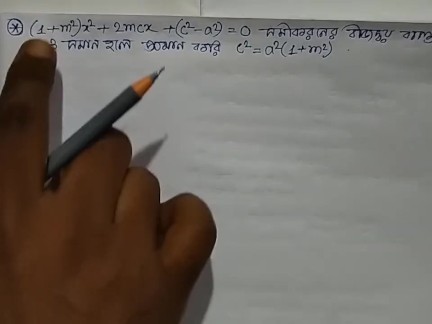 (1+m²)x² + 2mcx + (c²-a²) = 0 সমীকরণের বীজদ্বয় বাস্তব
ও সমান হলে প্রমাণ করি c² = a²(1+m²)